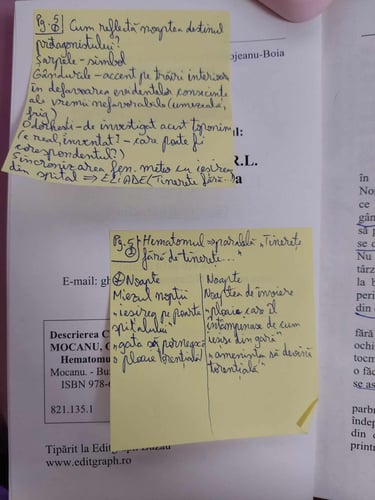 Pg. 5 Cum reflectă noaptea destinul
protagonistului?
Șarpele - simbol
Gândurile - accent pe trăiri interioare
în defavoarea evidentelor consecințe
ale vremii nefavorabile (umezeală,
frig)
Odorhești - de investigat acest toponim
(e real, inventat? - care poate fi
corespondentul?)
Sincronizarea fen. meteo cu ieșirea
din spital => ELIADE (Tinerețe fără...)
ojeanu-Boia
l:
R.L.
a
Pg. 5 Hematomul => paralelă „Tinerețe
fără de tinerețe..."
Noapte
Miezul nopții
„ieșirea pe poarta
spitalului"
„gata să pornească
o ploaie torențială"
Noapte
Noaptea de înviere
„ploaie care îl
întâmpinase de cum
ieșise din gară"
„amenința să devină
torențială"
E-mail: gh
Descrierea C
MOCANU, G
Hematomu
Mocanu. - Bu
ISBN 978-6
821.135.1
Tipărit la Editgraph Buzău
www.editgraph.ro
în
ce
gân
să p
se d
Nu
târz
la b
peri
din c
fost
ochi
tocm
o făc
se as
parbr
îndep
din d